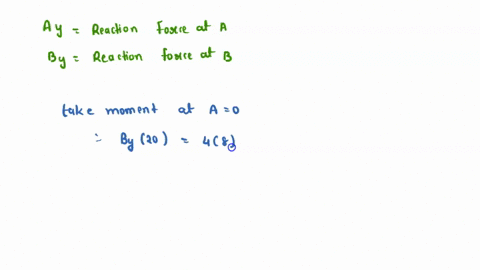 Ay = Reaction Force at A
By = Reaction force at B
take moment at A = 0
∴ By (20) = 4(8)